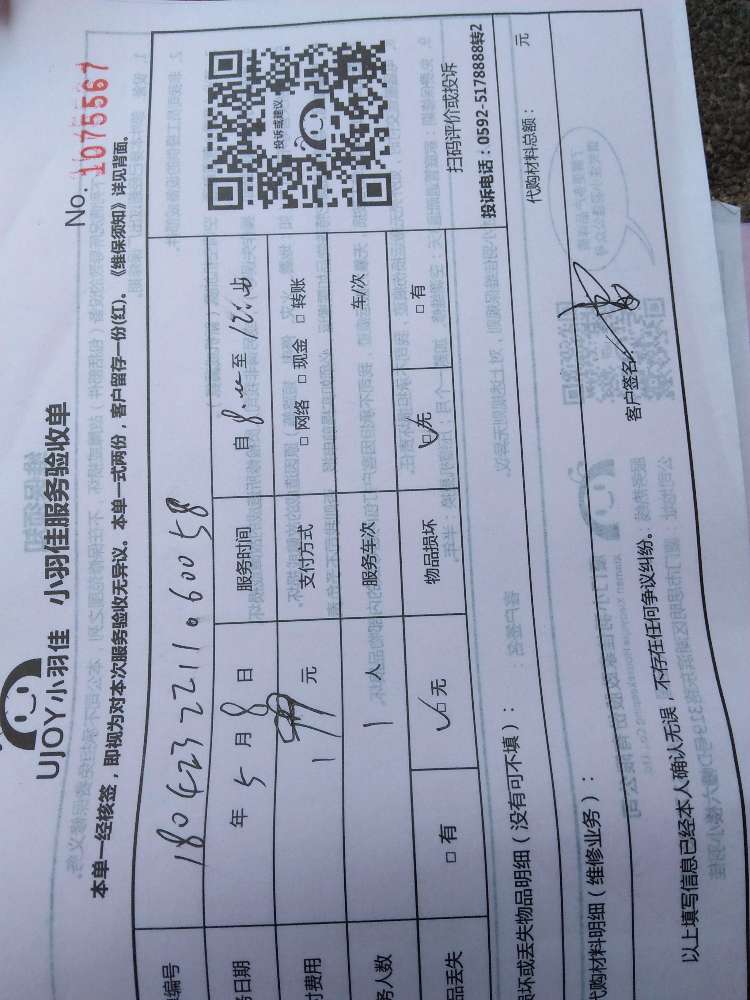 UJOY小羽佳 小羽佳服务验收单
No. 1075567
本单一经核签，即视为对本次服务验收无异议。本单一式两份，客户留存一份(红)。《维保须知》详见背面。
编号 180423221160058
日期 年 5 月 8 日 服务时间 自 8:00 至 12:00
费用 元 支付方式 □ 网络 □ 现金 □ 转账
人数 1 人 服务车次 车/次
丢失 □ 有 ☑ 无 物品损坏 ☑ 无 □ 有
投诉或建议
扫码评价或投诉
投诉电话：0592-5178888转2
坏或丢失物品明细（没有可不填）：
代购材料明细（维修业务）： 代购材料总额： 元
以上填写信息已经本人确认无误，不存在任何争议纠纷。 客户签名：